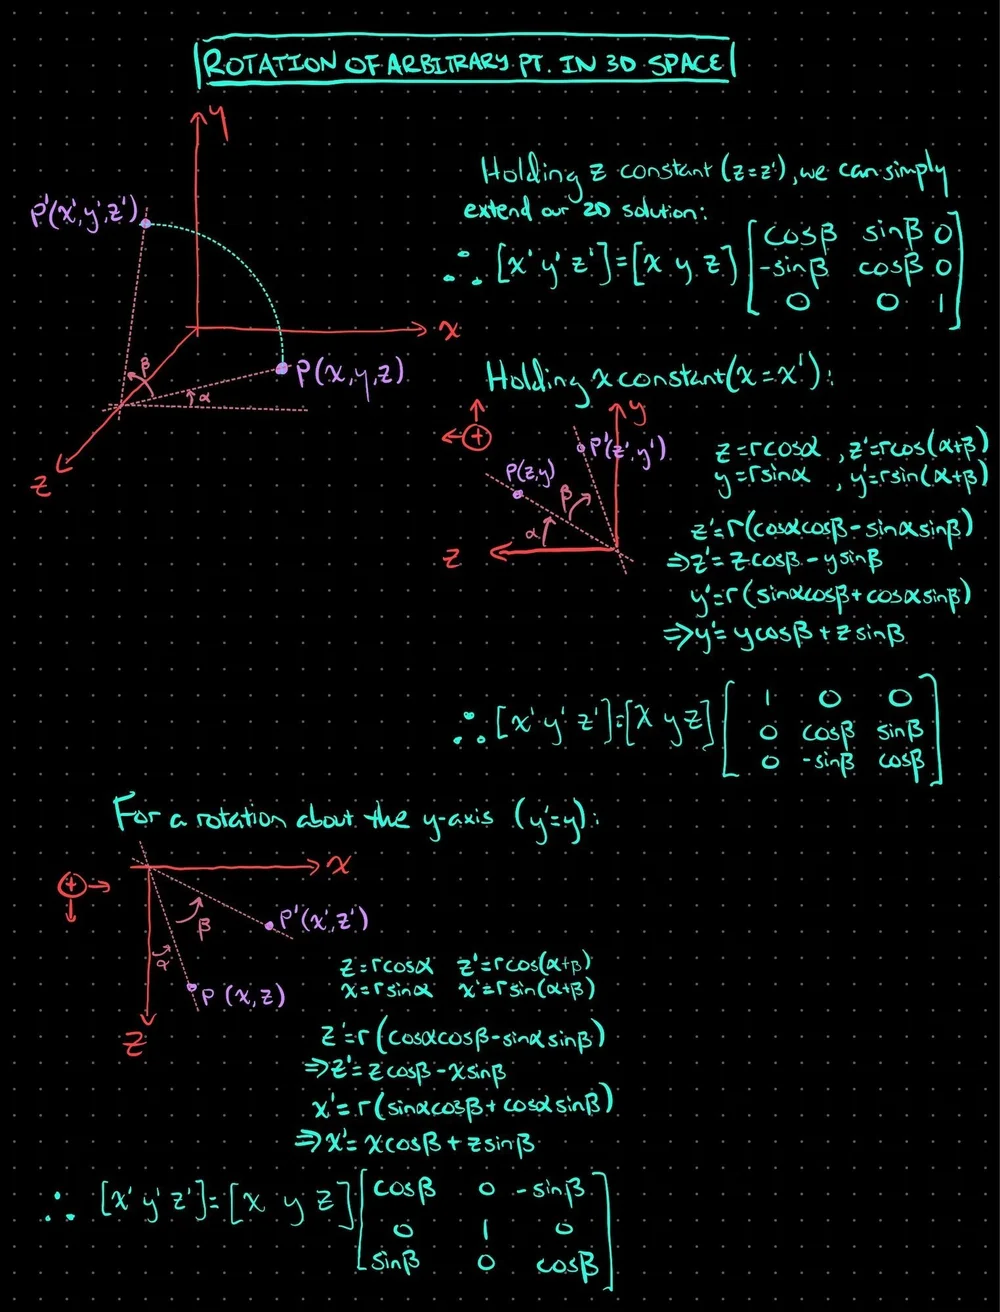 ROTATION OF ARBITRARY PT. IN 3D SPACE
y
P'(x',y',z')
x
P(x,y,z)
β
α
z
Holding z constant (z=z'), we can simply
extend our 2D solution:
∴ [x' y' z']=[x y z] [cosβ sinβ 0
-sinβ cosβ 0
0 0 1]
Holding x constant (x=x'):
+
y
P'(z',y')
P(z,y)
β
α
z
z=rcosα , z'=rcos(α+β)
y=rsinα , y'=rsin(α+β)
z'=r(cosαcosβ-sinαsinβ)
⇒z'=zcosβ-ysinβ
y'=r(sinαcosβ+cosαsinβ)
⇒y'=ycosβ+zsinβ
∴ [x' y' z']=[x y z] [1 0 0
0 cosβ sinβ
0 -sinβ cosβ]
For a rotation about the y-axis (y'=y):
x
+
P'(x',z')
β
α
P(x,z)
z
z=rcosα z'=rcos(α+β)
x=rsinα x'=rsin(α+β)
z'=r(cosαcosβ-sinαsinβ)
⇒z'=zcosβ-xsinβ
x'=r(sinαcosβ+cosαsinβ)
⇒x'=xcosβ+zsinβ
∴ [x' y' z']=[x y z] [cosβ 0 -sinβ
0 1 0
sinβ 0 cosβ]